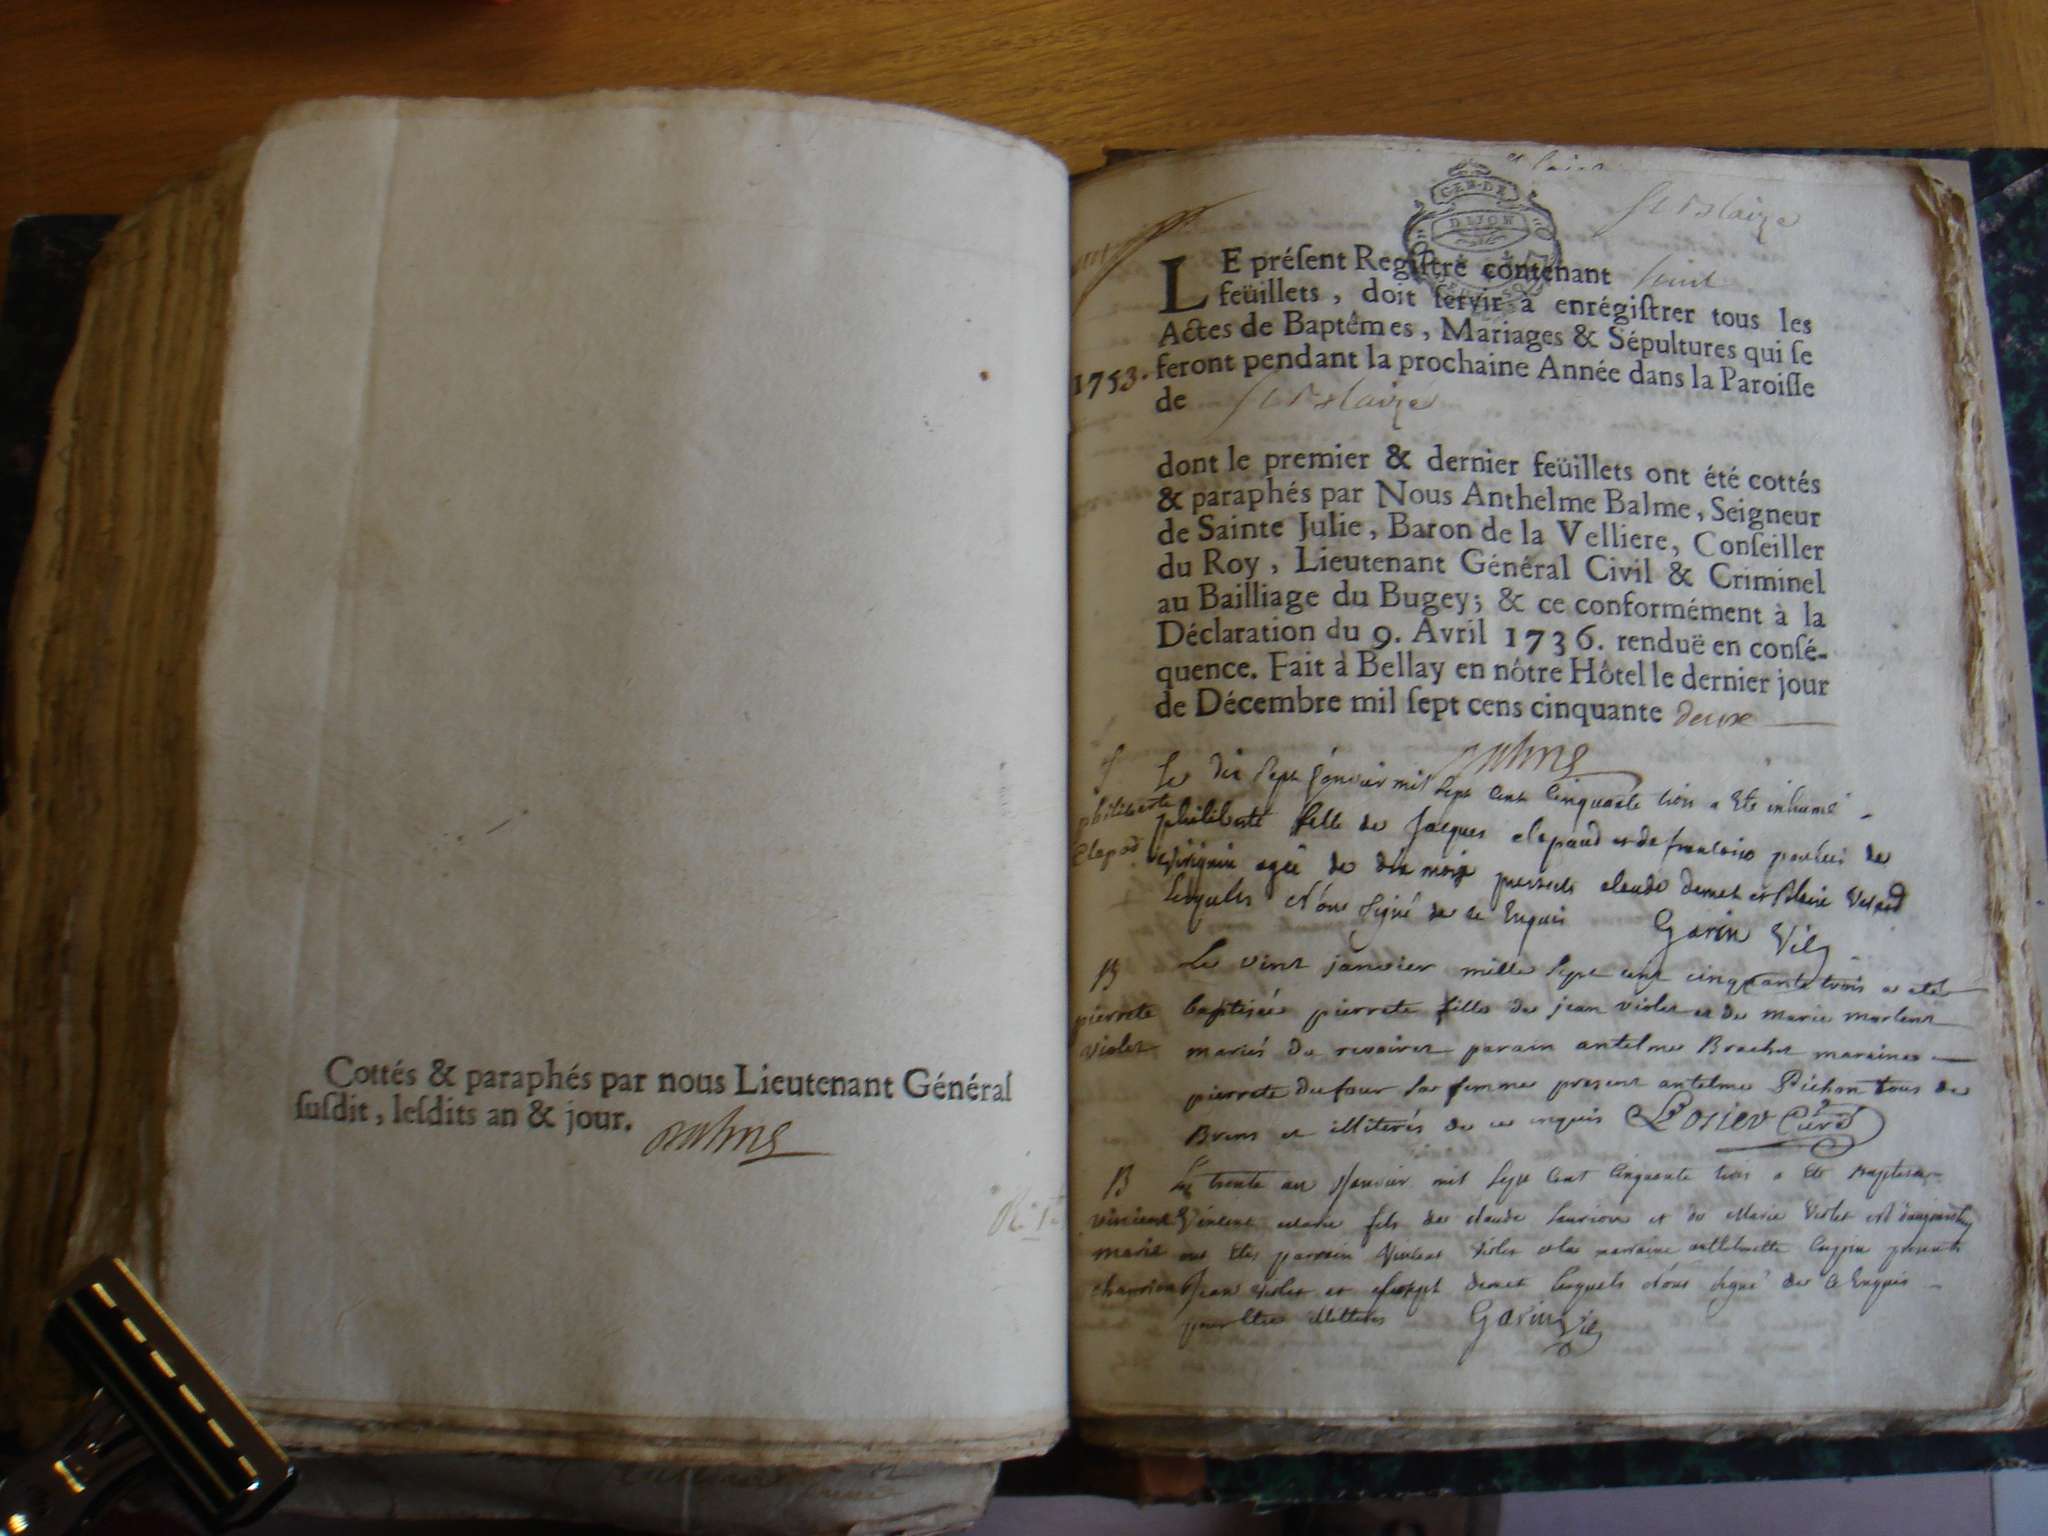 Cottés & paraphés par nous Lieutenant Général
ſuſdit, leſdits an & jour.
GEN. DE
DIJON
St Blaize
LE préſent Regiſtre contenant huit
feüillets, doit ſervir à enrégiſtrer tous les
Actes de Baptêmes, Mariages & Sépultures qui ſe
1753. feront pendant la prochaine Année dans la Paroiſſe
de St Blaize
dont le premier & dernier feüillets ont été cottés
& paraphés par Nous Anthelme Balme, Seigneur
de Sainte Julie, Baron de la Velliere, Conſeiller
du Roy, Lieutenant Général Civil & Criminel
au Bailliage du Bugey; & ce conformément à la
Déclaration du 9. Avril 1736. renduë en conſé-
quence. Fait à Bellay en nôtre Hôtel le dernier jour
de Décembre mil ſept cens cinquante deux
Le dix sept Janvier mil sept cent cinquante trois a été inhumé
philiberte philiberte fille de Jacques clapaud et de francoise de
clapod agée de dix mois presents claude demet et
lesquels n'ont signé de ce enquis Garin Vic
B Le vint janvier mille sept cent cinquante trois a eté
pierrete baptisée pierrete fille de jean violet et de marie
violet mariés de parain antelme Brachet maraine
pierrete dufour sa femme present antelme Pichon tous de
Brens et illiterés de ce enquis Rosier Curé
B Le trente un Janvier mil sept cent cinquante trois a été
vincent Vincent marie fils de claude et de Marie Violet
marie parrain Vincent Violet et la marraine presents
Jean violet et demet lesquels n'ont signé de ce enquis
pour être illitteres Garin Vic